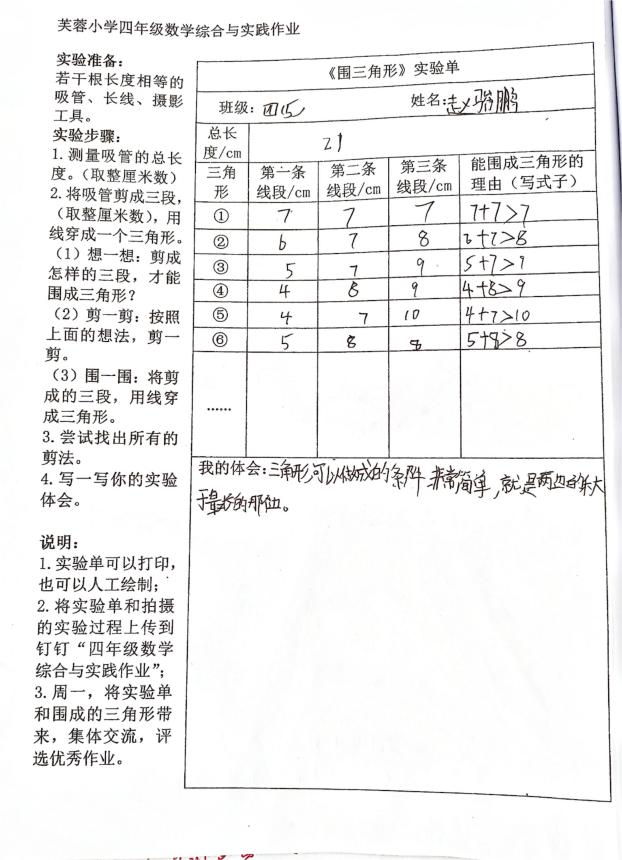 芙蓉小学四年级数学综合与实践作业
实验准备：
若干根长度相等的
吸管、长线、摄影
工具。
实验步骤：
1. 测量吸管的总长
度。（取整厘米数）
2. 将吸管剪成三段，
（取整厘米数），用
线穿成一个三角形。
（1）想一想：剪成
怎样的三段，才能
围成三角形？
（2）剪一剪：按照
上面的想法，剪一
剪。
（3）围一围：将剪
成的三段，用线穿
成三角形。
3. 尝试找出所有的
剪法。
4. 写一写你的实验
体会。
说明：
1. 实验单可以打印，
也可以人工绘制；
2. 将实验单和拍摄
的实验过程上传到
钉钉“四年级数学
综合与实践作业”；
3. 周一，将实验单
和围成的三角形带
来，集体交流，评
选优秀作业。
《围三角形》实验单
班级：四(5) 姓名：赵骆鹏
总长度/cm 21
三角形 第一条线段/cm 第二条线段/cm 第三条线段/cm 能围成三角形的理由（写式子）
① 7 7 7 7+7>7
② 6 7 8 6+7>8
③ 5 7 9 5+7>9
④ 4 8 9 4+8>9
⑤ 4 7 10 4+7>10
⑥ 5 8 8 5+8>8
……
我的体会：三角形可以做成的条件非常简单，就是两边的和大
于最长的那位。